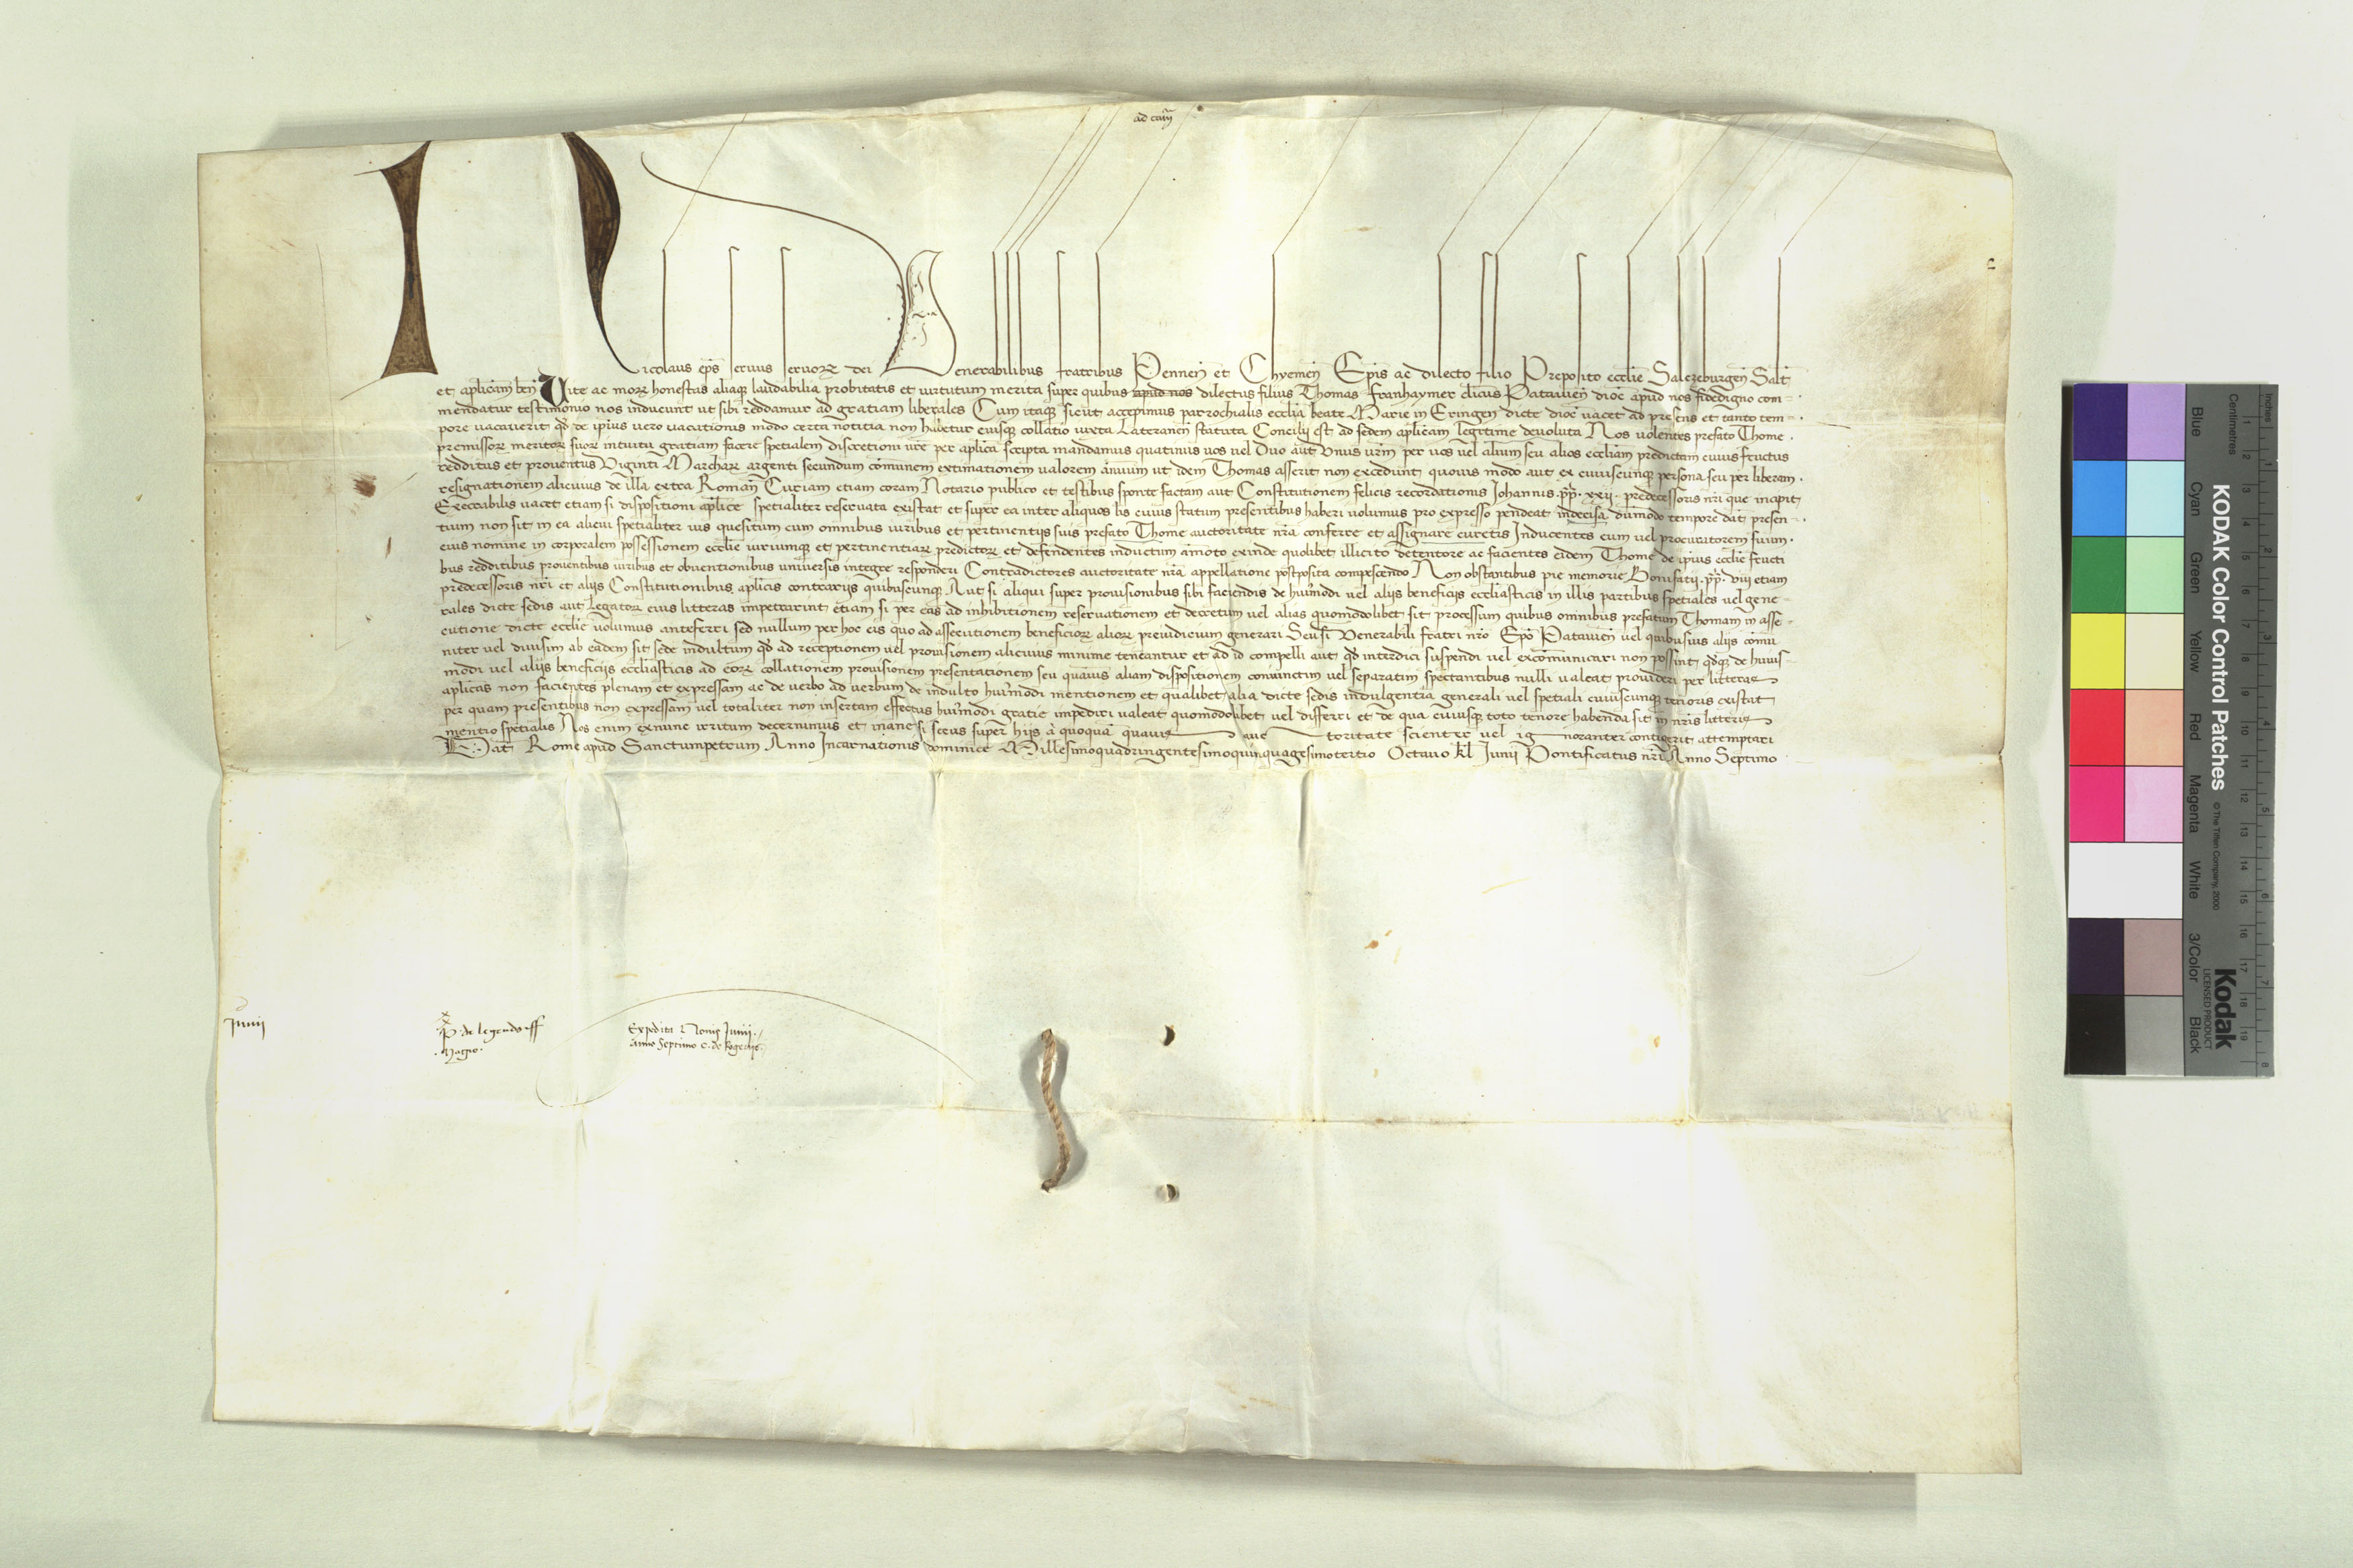 ad cam̃
Nicolaus ep̃s seruus seruoꝝ dei Venerabilibus fratribus Pennen̄ et Chyemen̄ Ep̃is ac dilecto filio Preposito eccl̃ie Salczeburgen̄ Salt̃
et aplicam ben̄ Uite ac moꝝ honestas aliaqꝫ laudabilia probitatis et uirtutum merita super quibus apud nos dilectus filius Thomas Franhaymer cl̃icus Patauien̄ dioc̄ apud nos fidedigno com=
mendatur testimonio nos inducunt ut sibi reddamur ad gratiam liberales Cum itaqꝫ sicut accepimus parrochialis ecclia beate Marie in Eringen dicte dioc̄ uacet ad presens et tanto tem=
pore uacauerit qđ de ip̃ius uero uacationis modo certa notitia non habetur eiusqꝫ collatio iuxta Lateranen̄ statuta Concilij est ad sedem aplicam legitime deuoluta Nos uolentes prefato Thome
premissoꝝ meritoꝝ suoꝝ intuitu gratiam facere spetialem discretioni ur̃e per aplica scripta mandamus quatinus uos uel Duo aut Vnus ur̃m per uos uel alium seu alios eccliam predictam cuius fructus
redditus et prouentus Viginti Marchaꝝ argenti secundum com̄unem extimationem ualorem an̄uum ut idem Thomas asserit non excedunt quouis modo aut ex cuiuscunqꝫ persona seu per liberam
resignationem alicuius de illa extra Roman̄ Curiam etiam coram Notario publico et testibus sponte factam aut Constitutionem felicis recordationis Johannis .pp̃. xxij. predecessoris nr̃i que incipit
Execrabilis uacet etiam si dispositioni aplice spetialiter reseruata existat et super ea inter aliquos lis cuius statum presentibus haberi uolumus pro expresso pendeat indecisa dum̄odo tempore dat̃ presen=
tium non sit in ea alicui spetialiter ius quesitum cum omnibus iuribus et pertinentijs suis prefato Thome auctoritate nr̃a conferre et assignare curetis Inducentes eum uel procuratorem suum
eius nomine in corporalem possessionem eccl̃ie iuriumqꝫ et pertinentiaꝝ predictoꝝ et defendentes inductum am̄oto exinde quolibet illicito detentore ac facientes eidem Thome de ip̃ius eccl̃ie fructi
bus redditibus prouentibus iuribus et obuentionibus uniuersis integre responderi Contradictores auctoritate nr̃a appellatione postposita compescendo Non obstantibus pie memorie Bonifatij .pp̃. viij etiam
predecessoris nr̃i et alijs Constitutionibus aplicis contrarijs quibuscunqꝫ Aut si aliqui super prouisionibus sibi faciendis de hui᷒modi uel alijs beneficijs ecclesiasticis in illis partibus spetiales uel gene=
rales dicte sedis aut legatoꝝ eius litteras impetrarint etiam si per eas ad inhibitionem reseruationem et decretum uel alias quomodolibet sit processum quibus omnibus prefatum Thomam in asse=
cutione dicte eccl̃ie uolumus anteferri sed nullum per hoc eis quo ad assecutionem beneficioꝝ alioꝝ preiudicium generari Seu si Venerabili fratri nr̃o Ep̃o Patauien̄ uel quibusuis alijs com̄u
niter uel diuisim ab eadem sit sede indultum qđ ad receptionem uel prouisionem alicuius minime teneantur et ad id compelli aut qđ interdici suspendi uel excom̄unicari non possint qđqꝫ de huius=
modi uel alijs beneficijs ecclesiasticis ad eoꝝ collationem prouisionem presentationem seu quamuis aliam dispositionem coniunctim uel separatim spectantibus nulli ualeat prouideri per litteras
aplicas non facientes plenam et expressam ac de uerbo ad uerbum de indulto hui᷒modi mentionem et qualibet alia dicte sedis indulgentia generali uel spetiali cuiuscunqꝫ tenoris existat
per quam presentibus non expressam uel totaliter non insertam effectus hui᷒modi gratie impediri ualeat quomodolibet uel differri et de qua cuiusqꝫ toto tenore habenda sit in nr̃is litteris
mentio spetialis Nos enim exnunc irritum decernimus et inane si secus super hijs a quoquā quauis auctoritate scienter uel ignoranter contigerit attemptari
Dat̃ Rome apud Sanctumpetrum Anno Incarnationis dominice Millesimoquadringentesimoquinquagesimotertio Octauo kl̃ Junij Pontificatus nr̃i Anno Septimo
Junij
.P. de legendorff
.Magio.
Expedita Nonis Junij
Anno Septimo C. de Rogerijs
KODAK Color Control Patches
© The Tiffen Company, 2000
Kodak
LICENSED PRODUCT
Inches
Centimetres
Blue Cyan Green Yellow Red Magenta White 3/Color Black